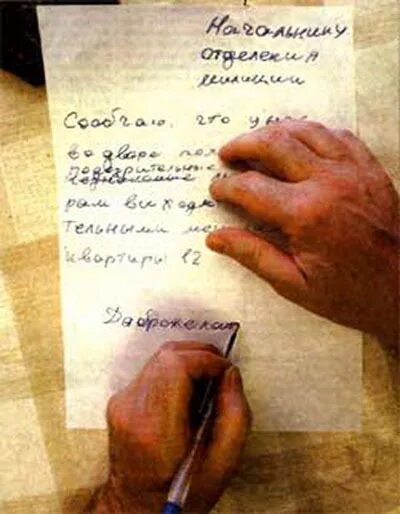 Начальнику
отделения
милиции
Сообчаю, что у
во дворе
подозрительные
рам выходю
тельными
квартиры 12
Даброжелат